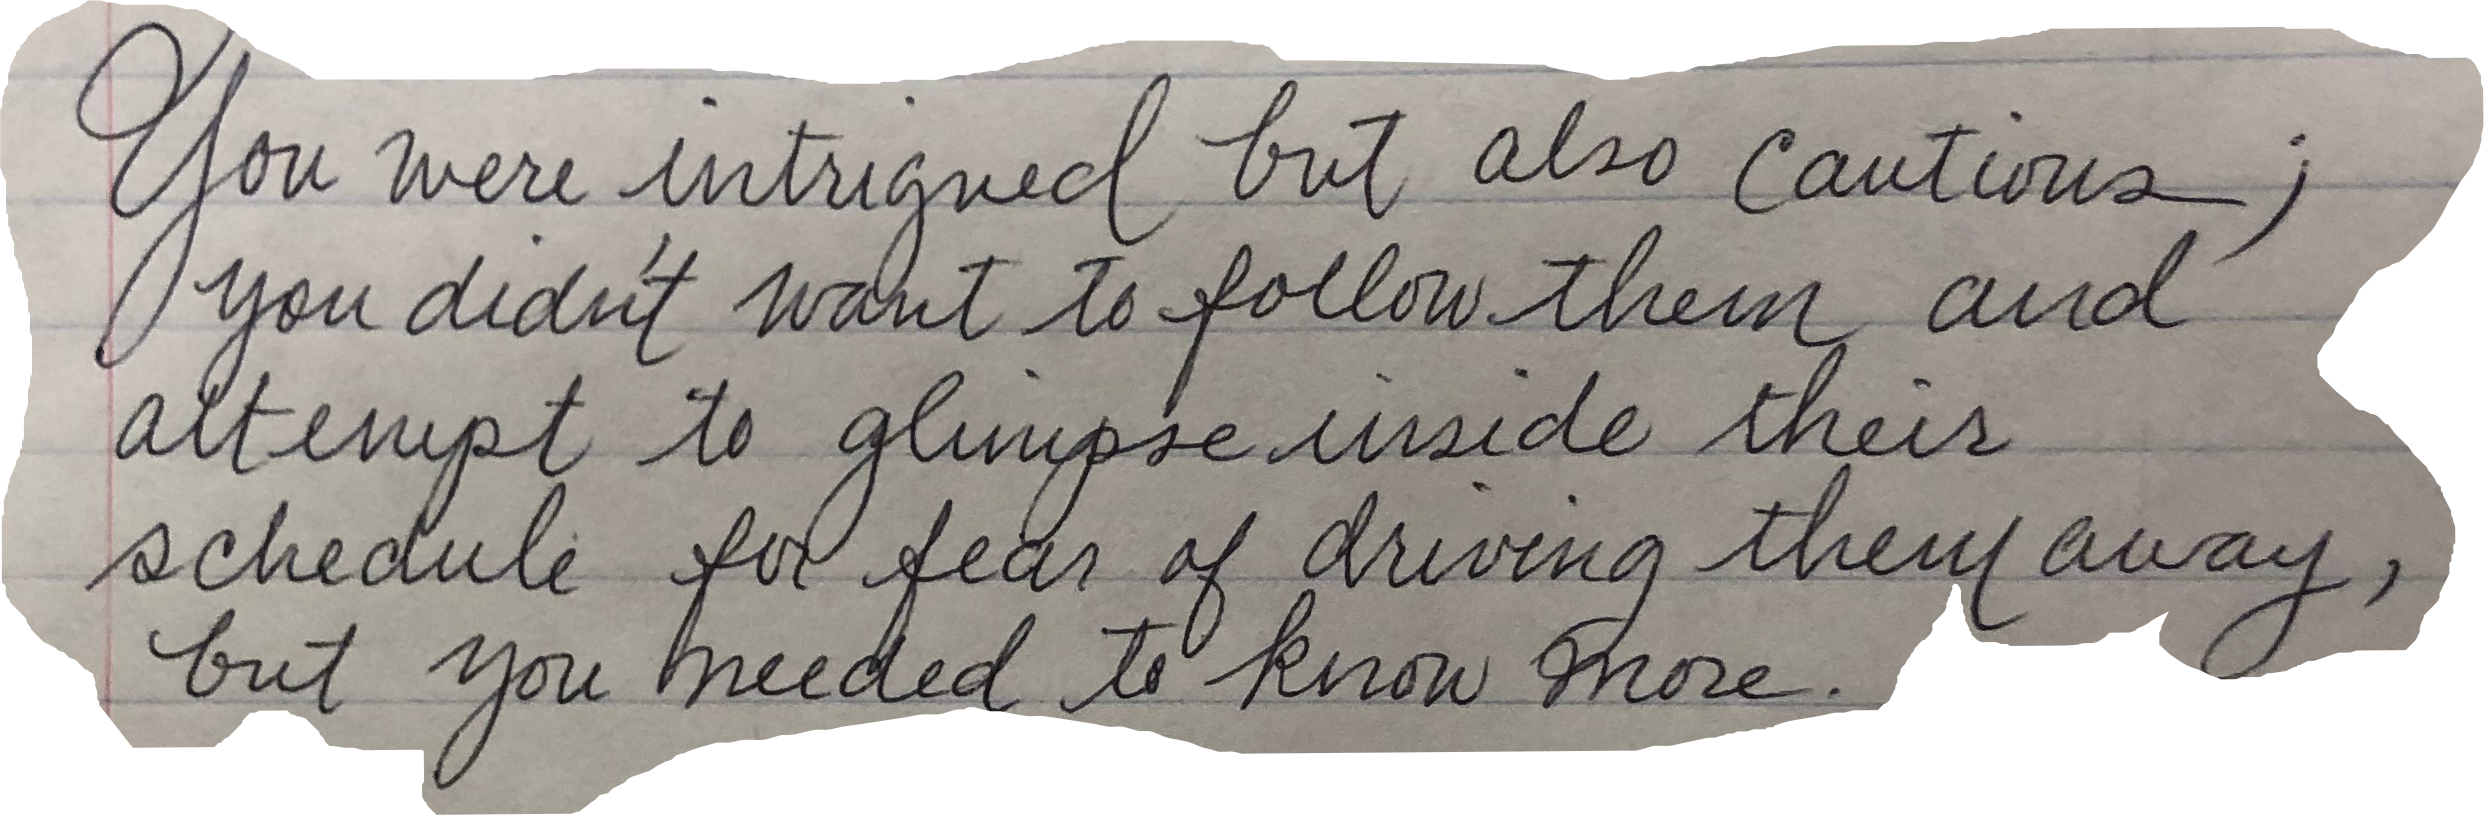 You were intrigued but also cautious;
you didn't want to follow them and
attempt to glimpse inside their
schedule for fear of driving them away,
but you needed to know more.